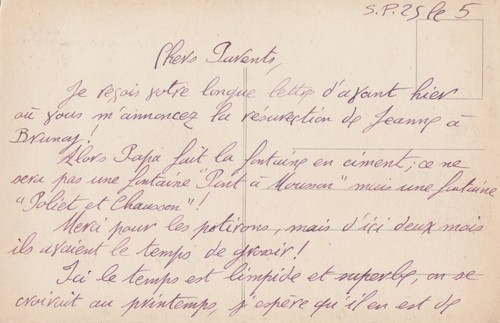 S.P. 25 le 5
Chers Parents,
Je reçois votre longue lettre d'avant hier
où vous m'annoncez la résurection de Jeanne à
Brunoy!
Alors Papa fait la fontaine en ciment; ce ne
sera pas une fontaine "Pont à Mousson" mais une fontaine
"Poliet et Chausson"!
Merci pour les potirons, mais d'ici deux mois
ils avaient le temps de grossir!
Ici le temps est limpide et superbe, on se
croirait au printemps, j'espère qu'il en est de